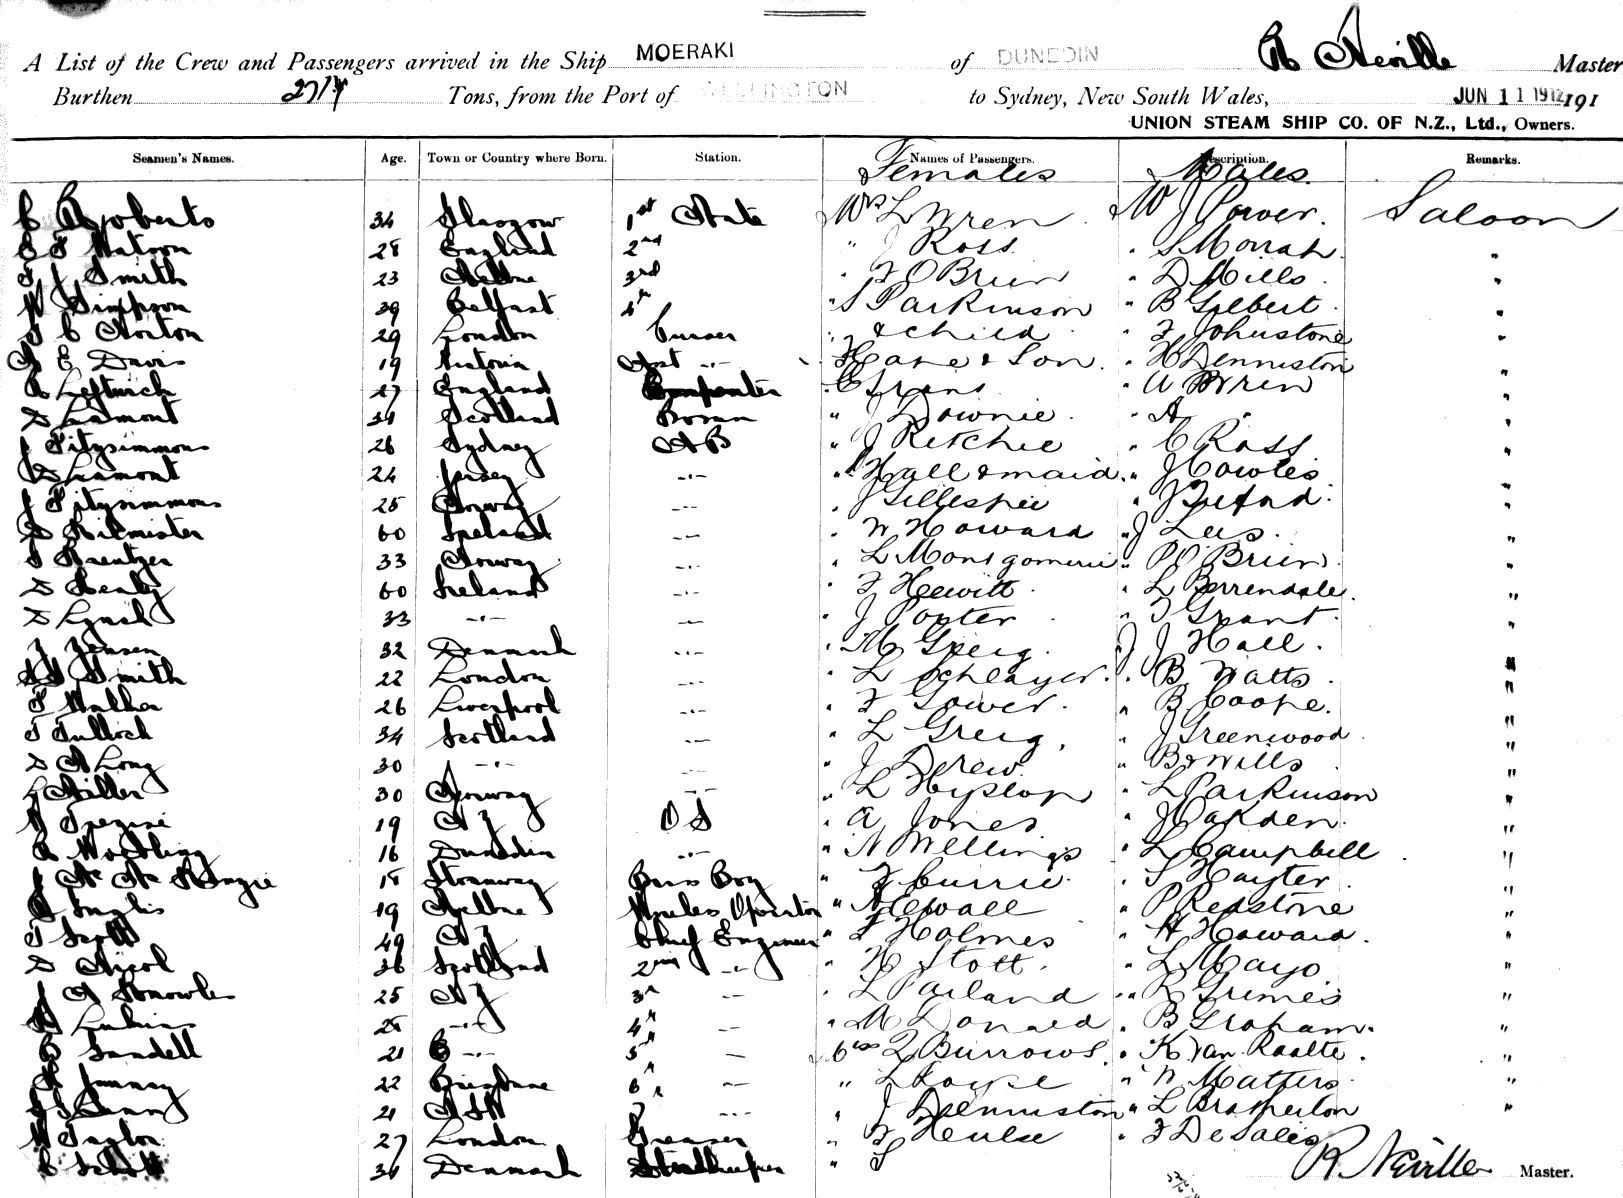 A List of the Crew and Passengers arrived in the Ship MOERAKI of DUNEDIN R Neville Master
Burthen 2714 Tons, from the Port of WELLINGTON to Sydney, New South Wales, JUN 11 1912 191
UNION STEAM SHIP CO. OF N.Z., Ltd., Owners.
Seamen's Names. Age. Town or Country where Born. Station. Names of Passengers. Description. Remarks.
Females Males.
C Roberts 34 Glasgow 1st Mate Mrs L Wren Mr J Power. Saloon
Watson 28 England 2nd " J Ross " S Morrah "
J Smith 23 3rd " O Brien " D Mills "
Simpson 39 Belfast 4th " S Parkinson " B Gilbert "
C Norton 29 London Purser " & child " F Johnstone "
E Davis 19 Asst -"- " Hare & Son " H Denniston "
Leftwich 27 England Carpenter " " A Wren "
D Lamont 31 Scotland Bosun " J Downie " A " "
J Fitzsimmons 26 Sydney AB " J Ritchie " C Ross "
D Lamont 24 Jersey -"- " Hall & maid " J Cowles "
J Fitzsimmons 25 Norway -"- " J Gillespie " J "
D Kilmister 60 Ireland -"- " W Howard " J Lees "
33 Norway -"- " L Montgomerie " P O'Brien "
D Healy 60 Ireland -"- " F Hewitt " L Berrendale "
D Lynch 33 -"- -"- " J Porter " F Grant "
J Jensen 32 Denmark -"- " M Greig " J Hall "
Smith 22 London -"- " L Schlager " B Watts "
F Walker 26 Liverpool -"- " F Gower " B Coope "
T Tulloch 34 Scotland -"- " L Greig " J Greenwood "
D A Long 30 -"- -"- " J Drew " B Wills "
Miller 30 Norway " L Hyslop " L Parkinson "
19 NZ OS " A Jones " J Harden "
16 Dunedin -"- " N Wellings " L Campbell "
J Mc Kenzie 18 Bars Boy " F Currie " S Hayter "
Inglis 19 Wireless Operator " Newall " P Redstone "
T Scott 49 NZ Chief Engineer " F Holmes " H Howard "
D Nicol 36 Scotland 2nd -"- " H Stott " L Mayo "
J A Knowles 25 NZ 3rd -"- " L Parland " R Grimes "
28 -"- 4th -"- " M Donald " B Graham "
C Sandell 21 -"- 5th - Mrs L Burrows " K van Raalte "
22 Brisbane 6th -"- " L " W Matters "
21 NSW 7 -"- " J Denniston " L Bramerton "
W Taylor 27 London Greaser " F Heulse " F De Sales
C 31 Denmark Storekeeper " S R Neville Master.